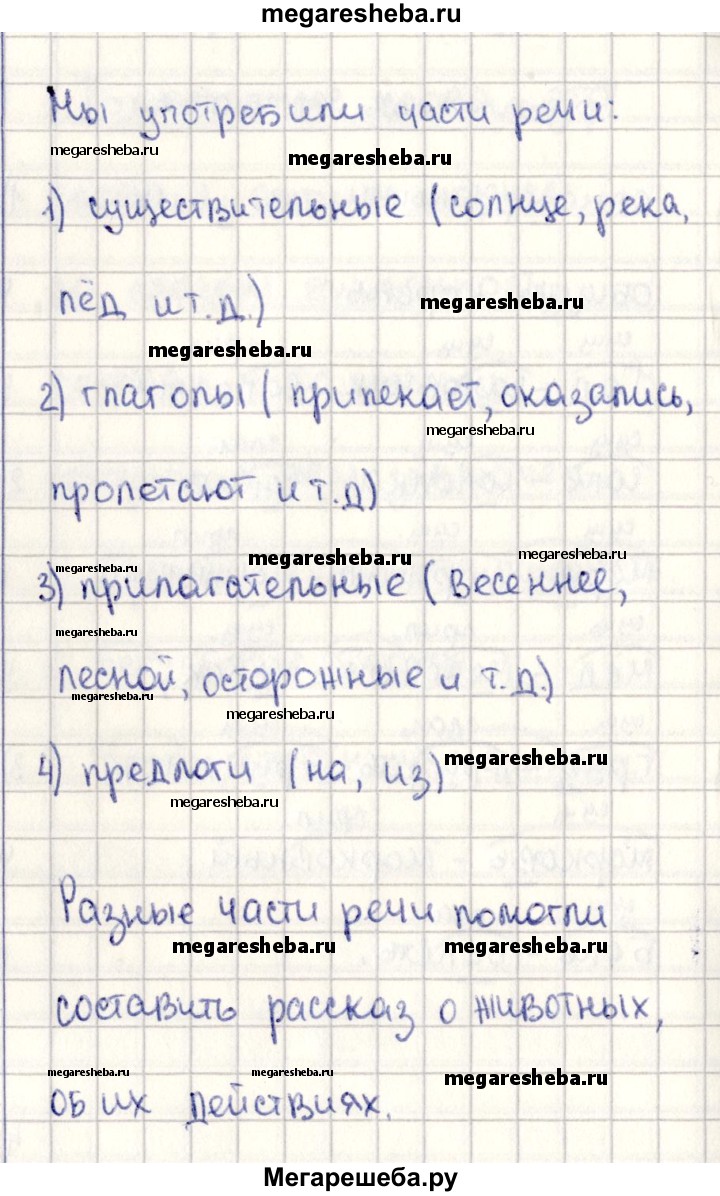 megaresheba.ru
Мы употребили части речи:
megaresheba.ru
megaresheba.ru
1) существительные (солнце, река,
лёд и т.д.)
megaresheba.ru
megaresheba.ru
2) глаголы (припекает, оказались,
megaresheba.ru
пролетают и т.д)
megaresheba.ru
megaresheba.ru
megaresheba.ru
3) прилагательные (весеннее,
megaresheba.ru
лесной, осторожные и т.д.)
megaresheba.ru
megaresheba.ru
4) предлоги (на, из)
megaresheba.ru
megaresheba.ru
Разные части речи помогли
megaresheba.ru
megaresheba.ru
составить рассказ о животных,
megaresheba.ru
megaresheba.ru
megaresheba.ru
об их действиях.
Мегарешеба.ру